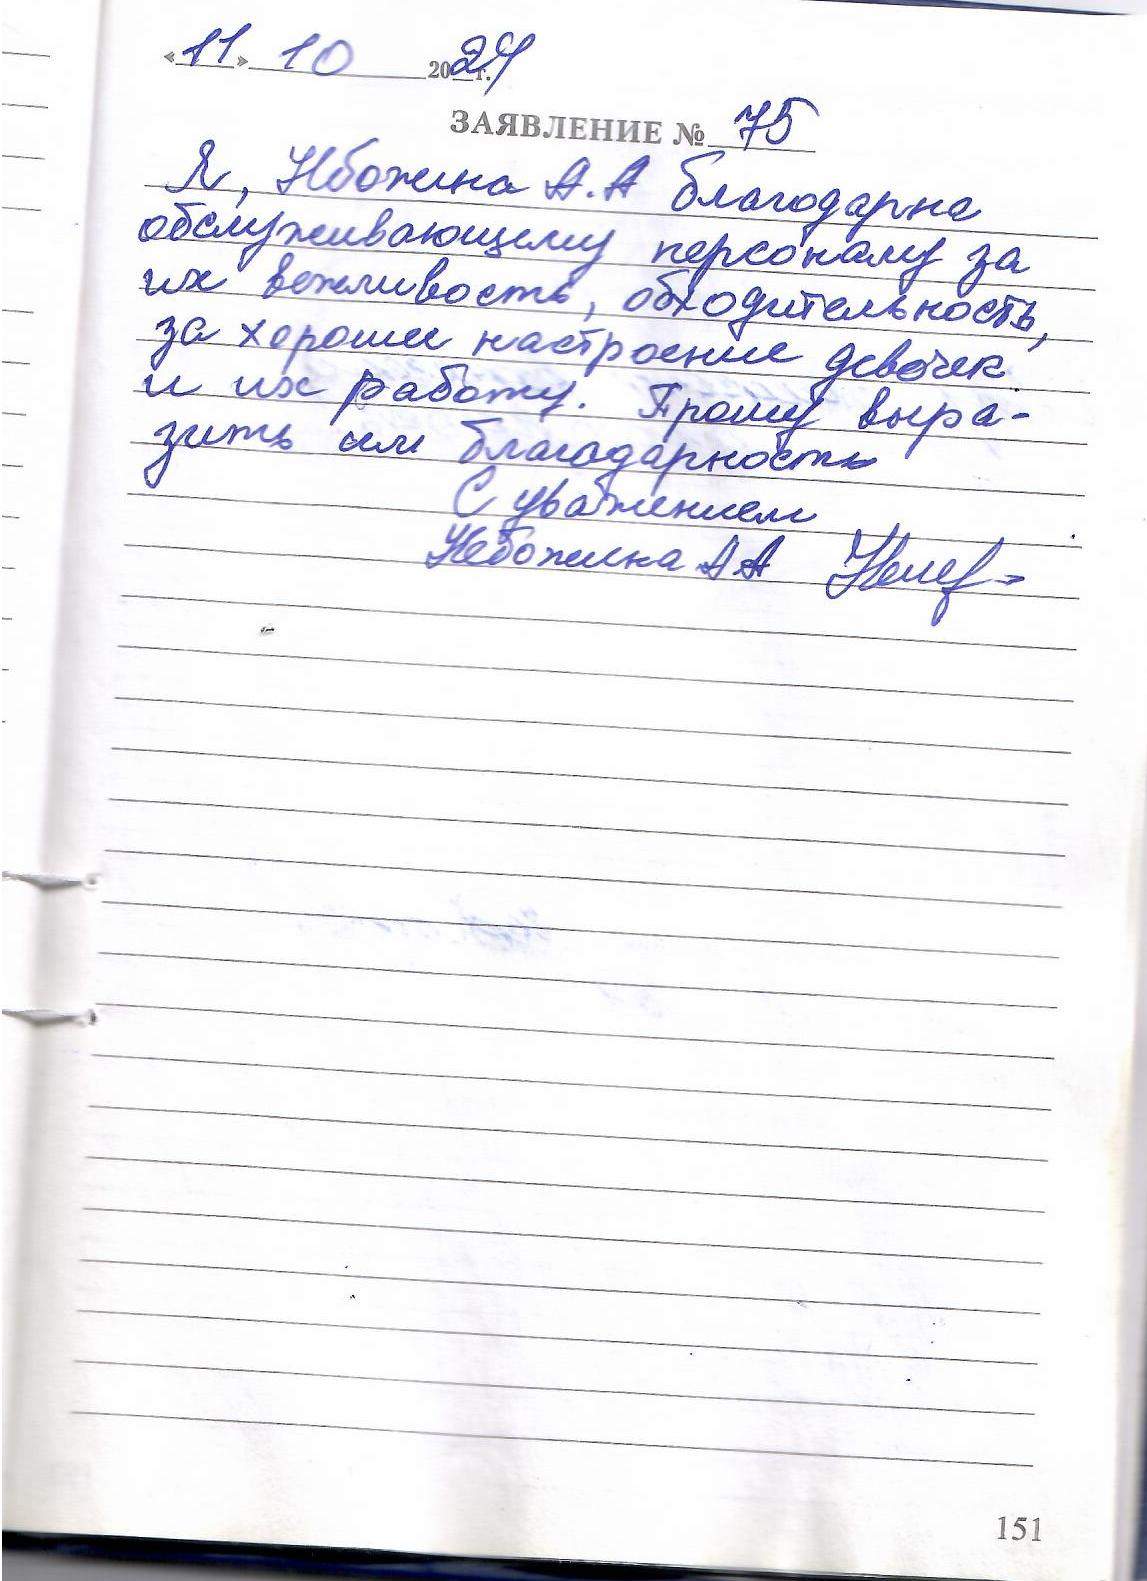 «11» 10 2024 г.
ЗАЯВЛЕНИЕ № 75
Я, Нбожина А.А благодарна
обслуживающему персоналу за
их вежливость, обходительность,
за хорошее настроение девочек
и их работу. Прошу выра-
зить им благодарность
С уважением
Небожина А А
151